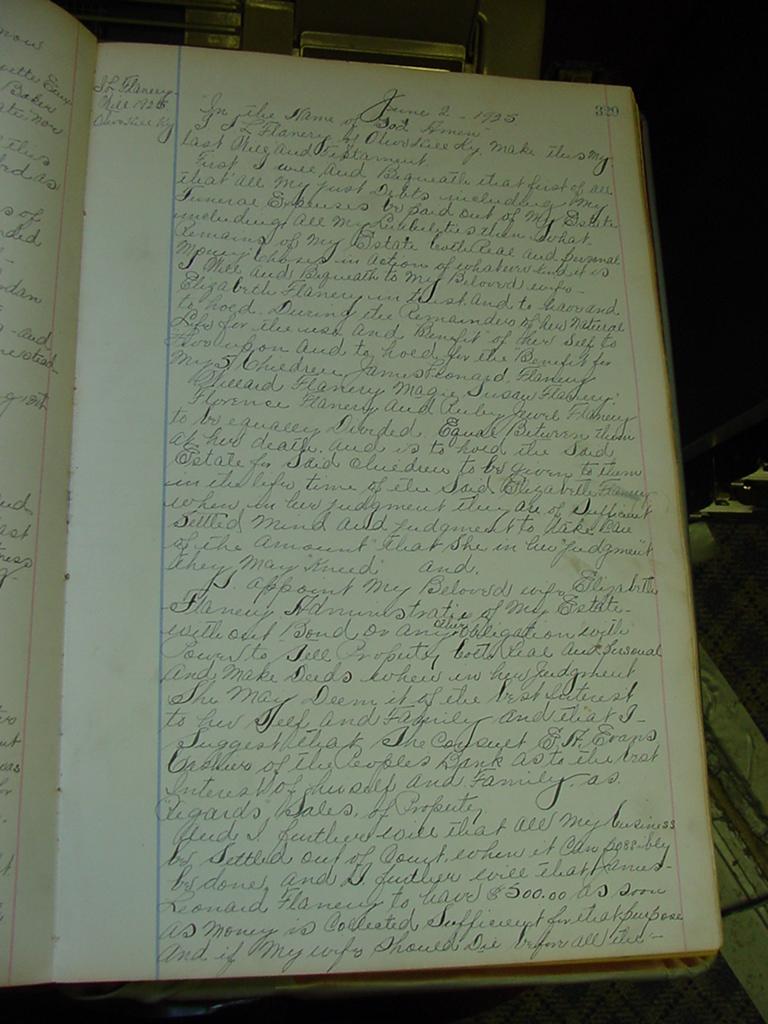 J L Flanery
Will 1925
Olive Hill Ky
329
June 2 - 1925
In the Name of God Amen
I J L Flanery of Olive Hill Ky. Make this my
last Will and Testament
First I will and Bequeath that first of all
that all My just Debts including My
Funeral Expenses be paid out of My Estate
including all My Liabilities then what
Remains of My Estate both Real and personal
Money choses in action of whatever kind it is
I Will and Bequeath to My Beloved wife
Elizabeth Flanery in trust and to have and
to hold. During the Remainder of her Natural
Life for the use and Benefit of her self to
live upon and to hold for the Benefit for
My 5 Children James Leonard Flanery
Willard Flanery Magie Susan Flanery
Florence Flanery and Ruby Jewel Flanery
to be equally Divided. Equal Between them
at her death. and is to hold the Said
Estate for Said children to be given to them
in the life time of the Said Elizabeth Flanery
when in her judgment they are of Sufficient
Settled Mind and judgment to take Care
of the amount that She in her judgment
they May "kneed" and.
I. appoint My Beloved wife Elizabeth
Flanery Administratrix of My Estate-
without Bond or any other obligation with
Power to Sell Property both Real and personal
And Make Deeds when in her judgment
She May Deem it of the best Interest
to her Self and Family and that I-
Suggest that She Consult E. H. Evans
Cashier of the Peoples Bank as to the best
Interest of herself and Family. as
Regards Sales. of Property
And I further will that all My business
be Settled out of Court when it Can possibly
be done, and I further will that James-
Leonard Flanery to have $500.00 as soon
as Money is Collected Sufficient for that purpose
And if My wife Should Die before all the-